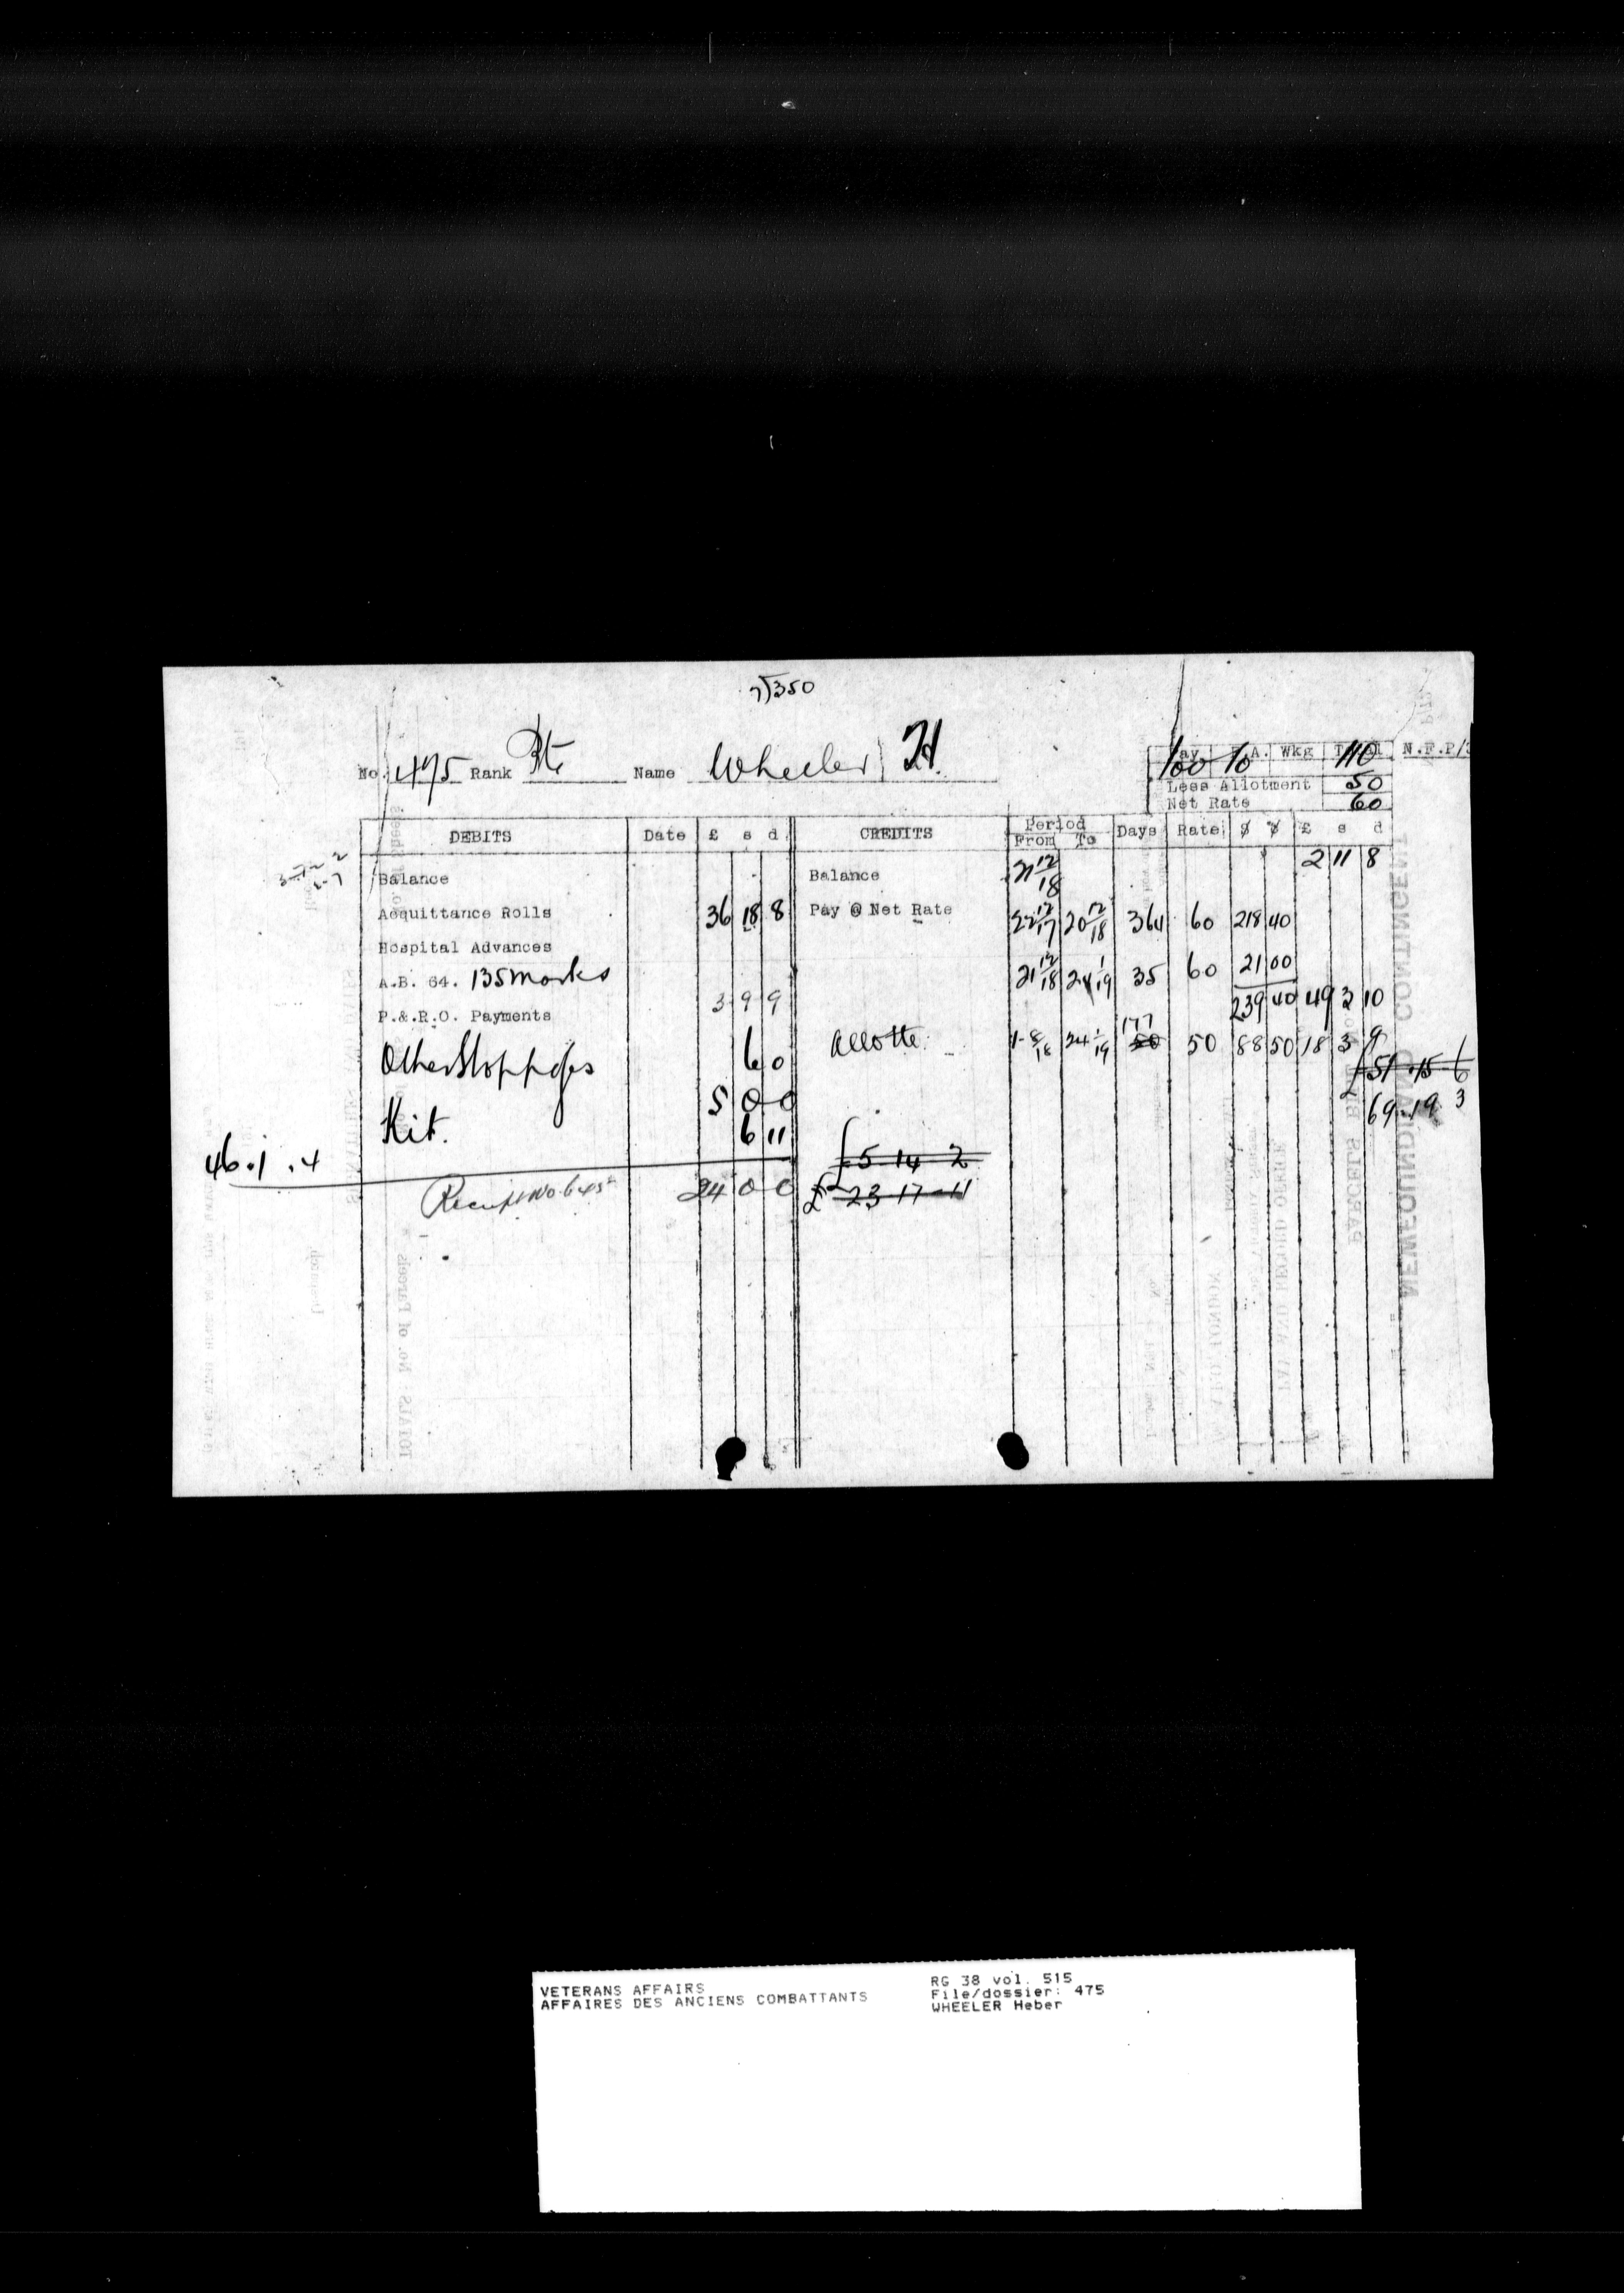 7)350
No. 475 Rank Pte Name Wheeler H.
Pay F.A. Wkg Total N.F.P/
100 10 110
Less Allotment 50
Net Rate 60
DEBITS Date £ s d CREDITS Period From To Days Rate $ ¢ £ s d
Balance Balance 21 12/18 2 11 8
Acquittance Rolls 36 18 8 Pay @ Net Rate 22 12/17 20 12/18 364 60 218 40
Hospital Advances
A.B. 64. 135 Marks 3 9 9 21 12/18 24 1/19 35 60 21 00
239 40 49 3 10
P.&.R.O. Payments
Other Stoppages 6 0 Allotte 1-8/18 24 1/19 177 50 88 50 18 3 9
£51.15.6
5 0 0 69.19 3
Kit. 6 11
46.1.4
£5-14-2
Receipt No 24 0 0 £23-17-11
NEWFOUNDLAND CONTINGENT
PAY AND RECORD OFFICE
TOTALS No. of Parcels
VETERANS AFFAIRS
AFFAIRES DES ANCIENS COMBATTANTS
RG 38 vol. 515
File/dossier: 475
WHEELER Heber